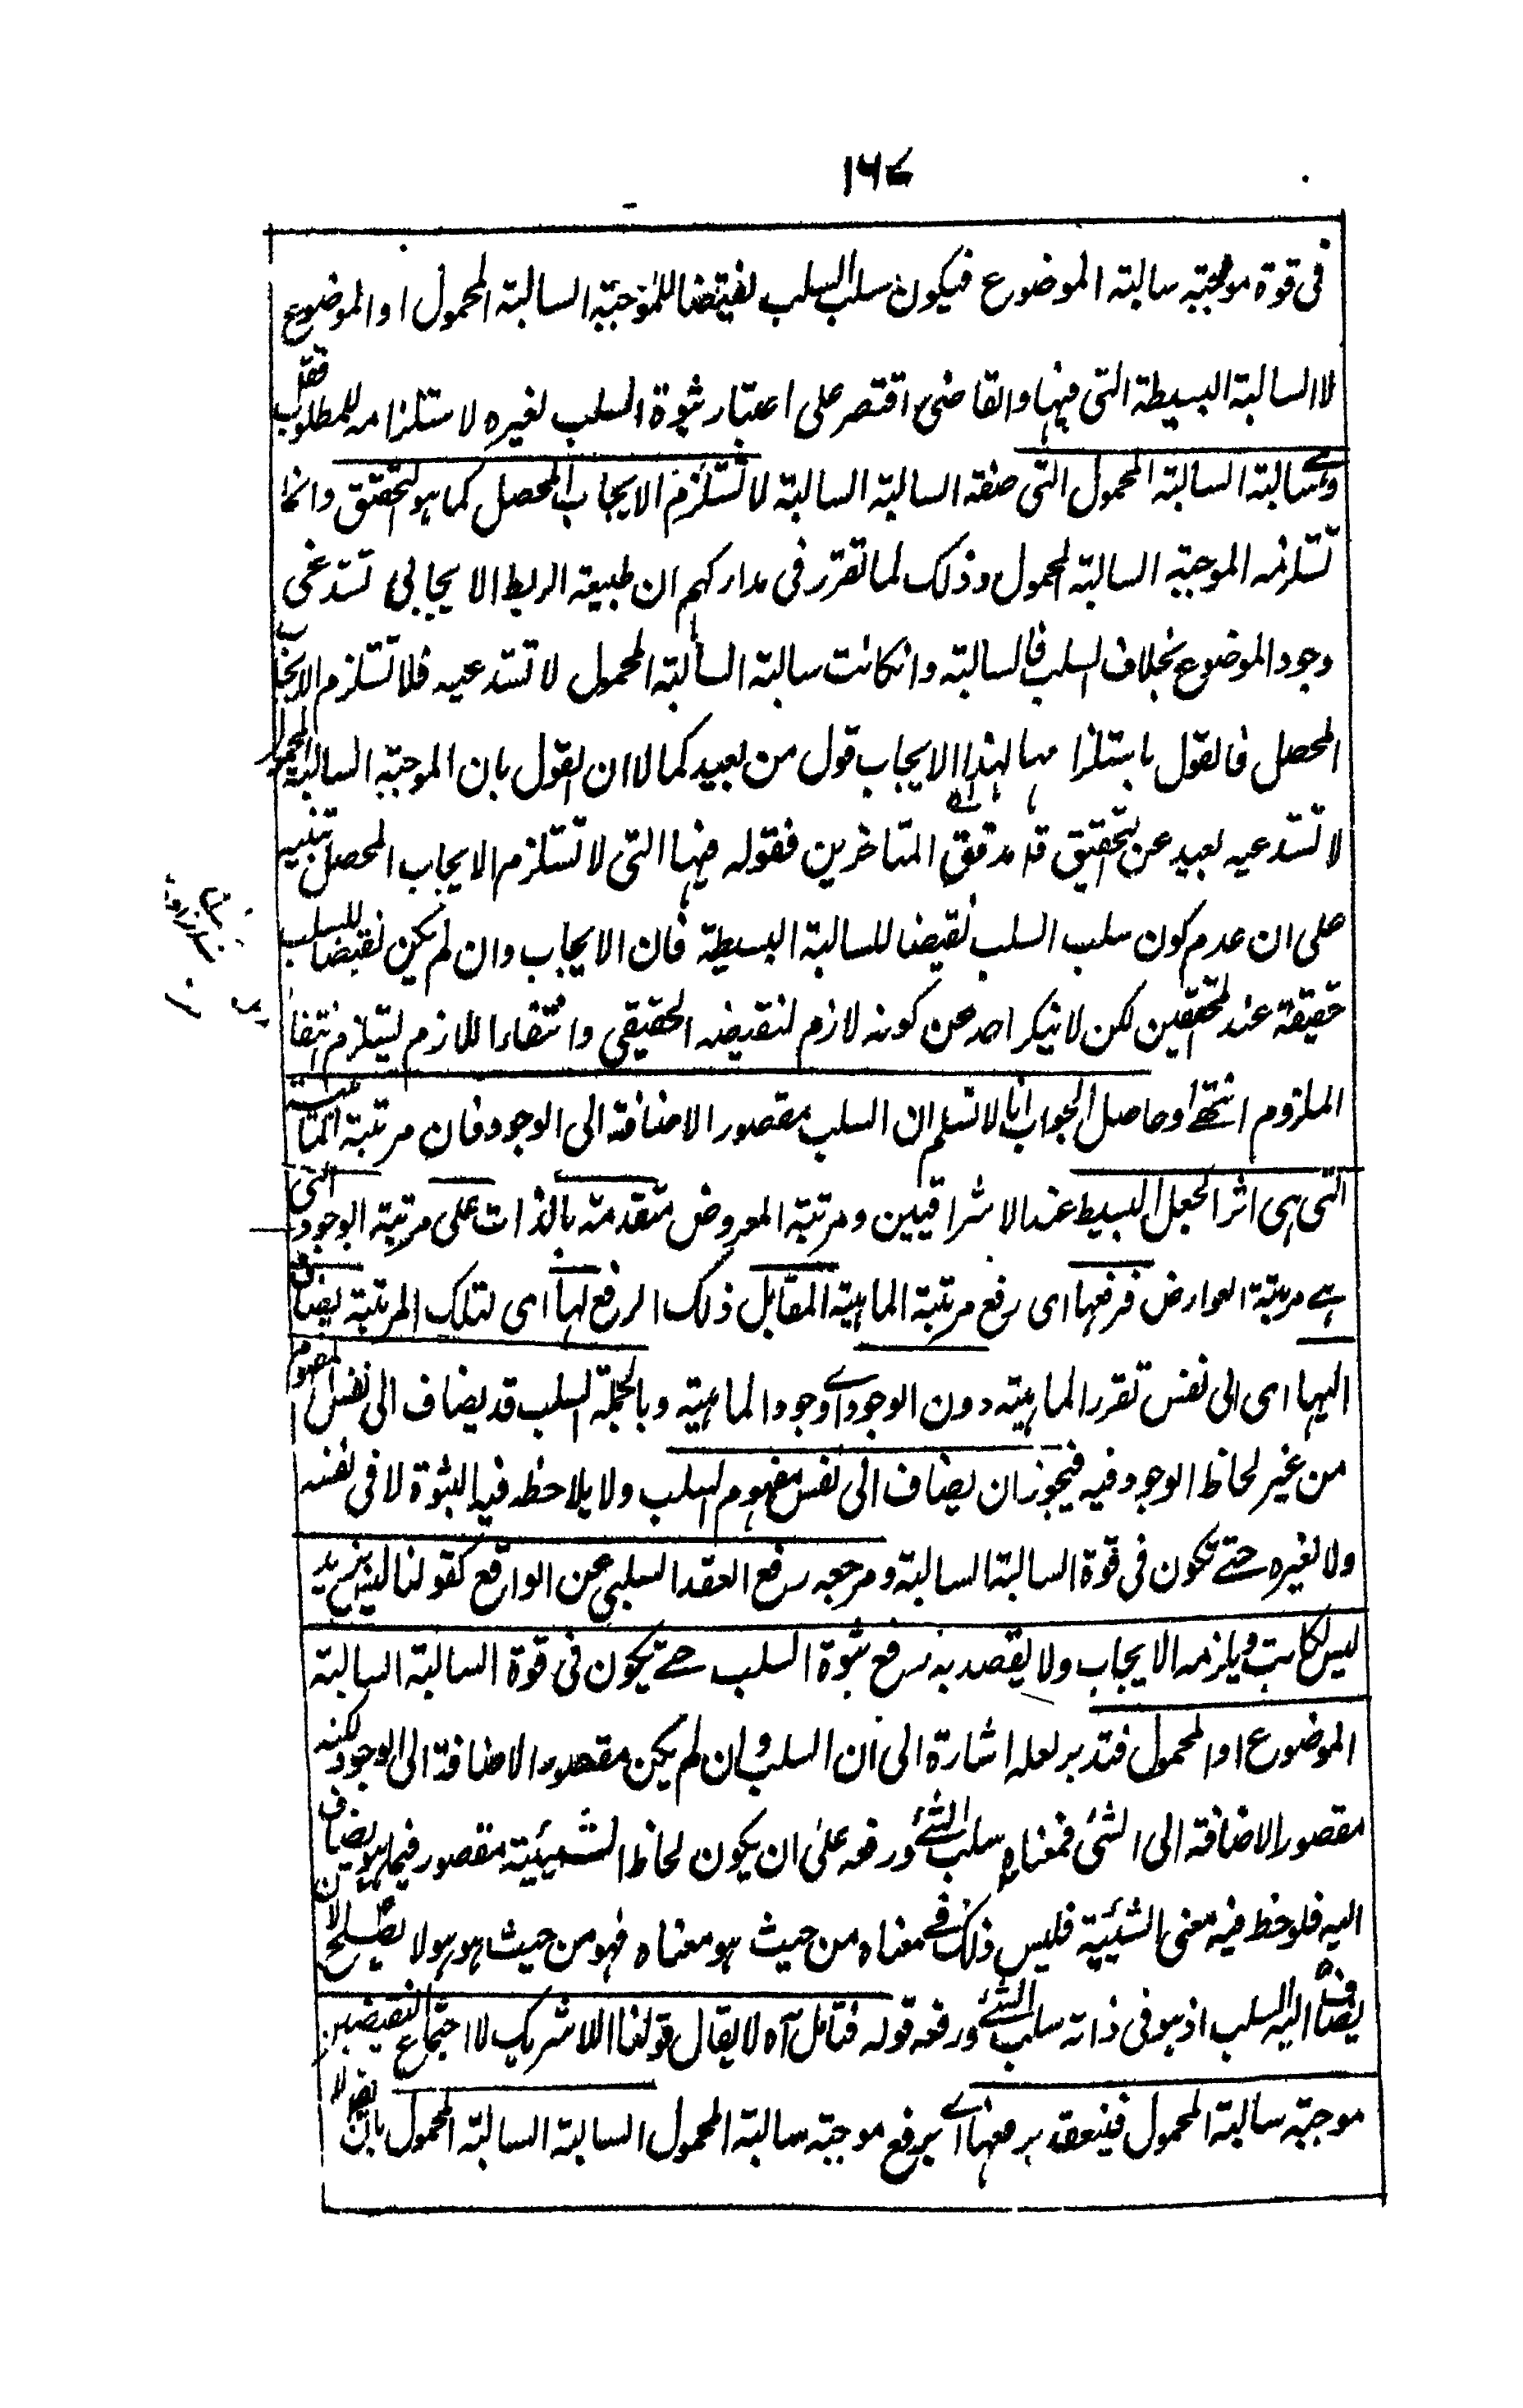 ١٦٧
فى قوة موجبته سالبته الموضوع فيكون سلب السلب نقيضا للموجبته السالبته المحمول او الموضوع
لا السالبة البسيطة التى فيها والقاضى اقتصر على اعتبار ثبوة السلب لغيره لاستلزامه للمطلوب فقط
وهے سالبته السالبته المحمول التى صفة السالبته السالبته لا تستلزم الايجاب المحصل كما هو التحقيق وانما
تستلزمه الموجبته السالبته المحمول وذلك لما تقرر فى مداركهم ان طبيعة الربط الايجابى تستدعى
وجود الموضوع بخلاف السلب فالسالبته وانكانت سالبته السالبته المحمول لا تستدعيه فلا تستلزم الايجاب
المحصل فالقول باستلزامها لهذا الايجاب قول من بعيد كما لا ان القول بان الموجبته السالبته المحمول
لا تستدعيه بعيد عن التحقيق قاله مدقق المتاخرين فقوله فيها التى لا تستلزم الايجاب المحصل تنبيه
على ان عدم كون سلب السلب نقيضا للسالبة البسيطة فان الايجاب وان لم يكن نقيضا للسلب
حقيقة عند المحققين لكن لا ينكر احد عن كونه لازم لنقيضه الحقيقى وانتفاء اللازم يستلزم انتفاء
الملزوم انتهے وحاصل الجواب انا لا نسلم ان السلب مقصور الاضافة الى الوجود فان مرتبة الماهية
التى هى اثر الجعل البسيط عند الاشراقيين ومرتبة المعروض متقدمة بالذات على مرتبة الوجود التى
هے مرتبة العوارض فرفعها اى رفع مرتبة الماهية المقابل ذلك الرفع لها اى لتلك المرتبة يضاف
اليها اى الى نفس تقرر الماهيته دون الوجود اے وجود الماهيته وبالجملة السلب قد يضاف الى نفس المفهوم
من غير لحاظ الوجود فيه فيجوز ان يضاف الى نفس مفهوم السلب ولا يلاحظ فيه الثبوة لا فى نفسه
ولا لغيره حتے تكون فى قوة السالبة السالبة ومرجعه رفع العقد السلبى عن الواقع كقولنا ليس زيد
ليس بكاتب ويلزمه الايجاب ولا يقصد به رفع ثبوة السلب حتے يكون فى قوة السالبة السالبة
الموضوع او المحمول فتدبر لعله اشارة الى ان السلب وان لم يكن مقصور الاضافة الى الوجود لكنه
مقصور الاضافة الى الشئ فمعناه سلب الشئے ورفعه على ان يكون لحاظ الشيئية مقصور فيما يضاف
اليه فلوحظ فيه معنى الشيئية فليس ذلك فے معناه من حيث هو معناه فهو من حيث هو هو لا يصلح لان
يضاف اليه السلب اذ هو فى ذاته سلب الشئے ورفعه قوله فتامل آه لا يقال قولنا اللاشريك لا اجتماع النقيضين
موجبته سالبته المحمول فينعقد برفعها اے برفع موجبته سالبته المحمول السالبته السالبته المحمول بان